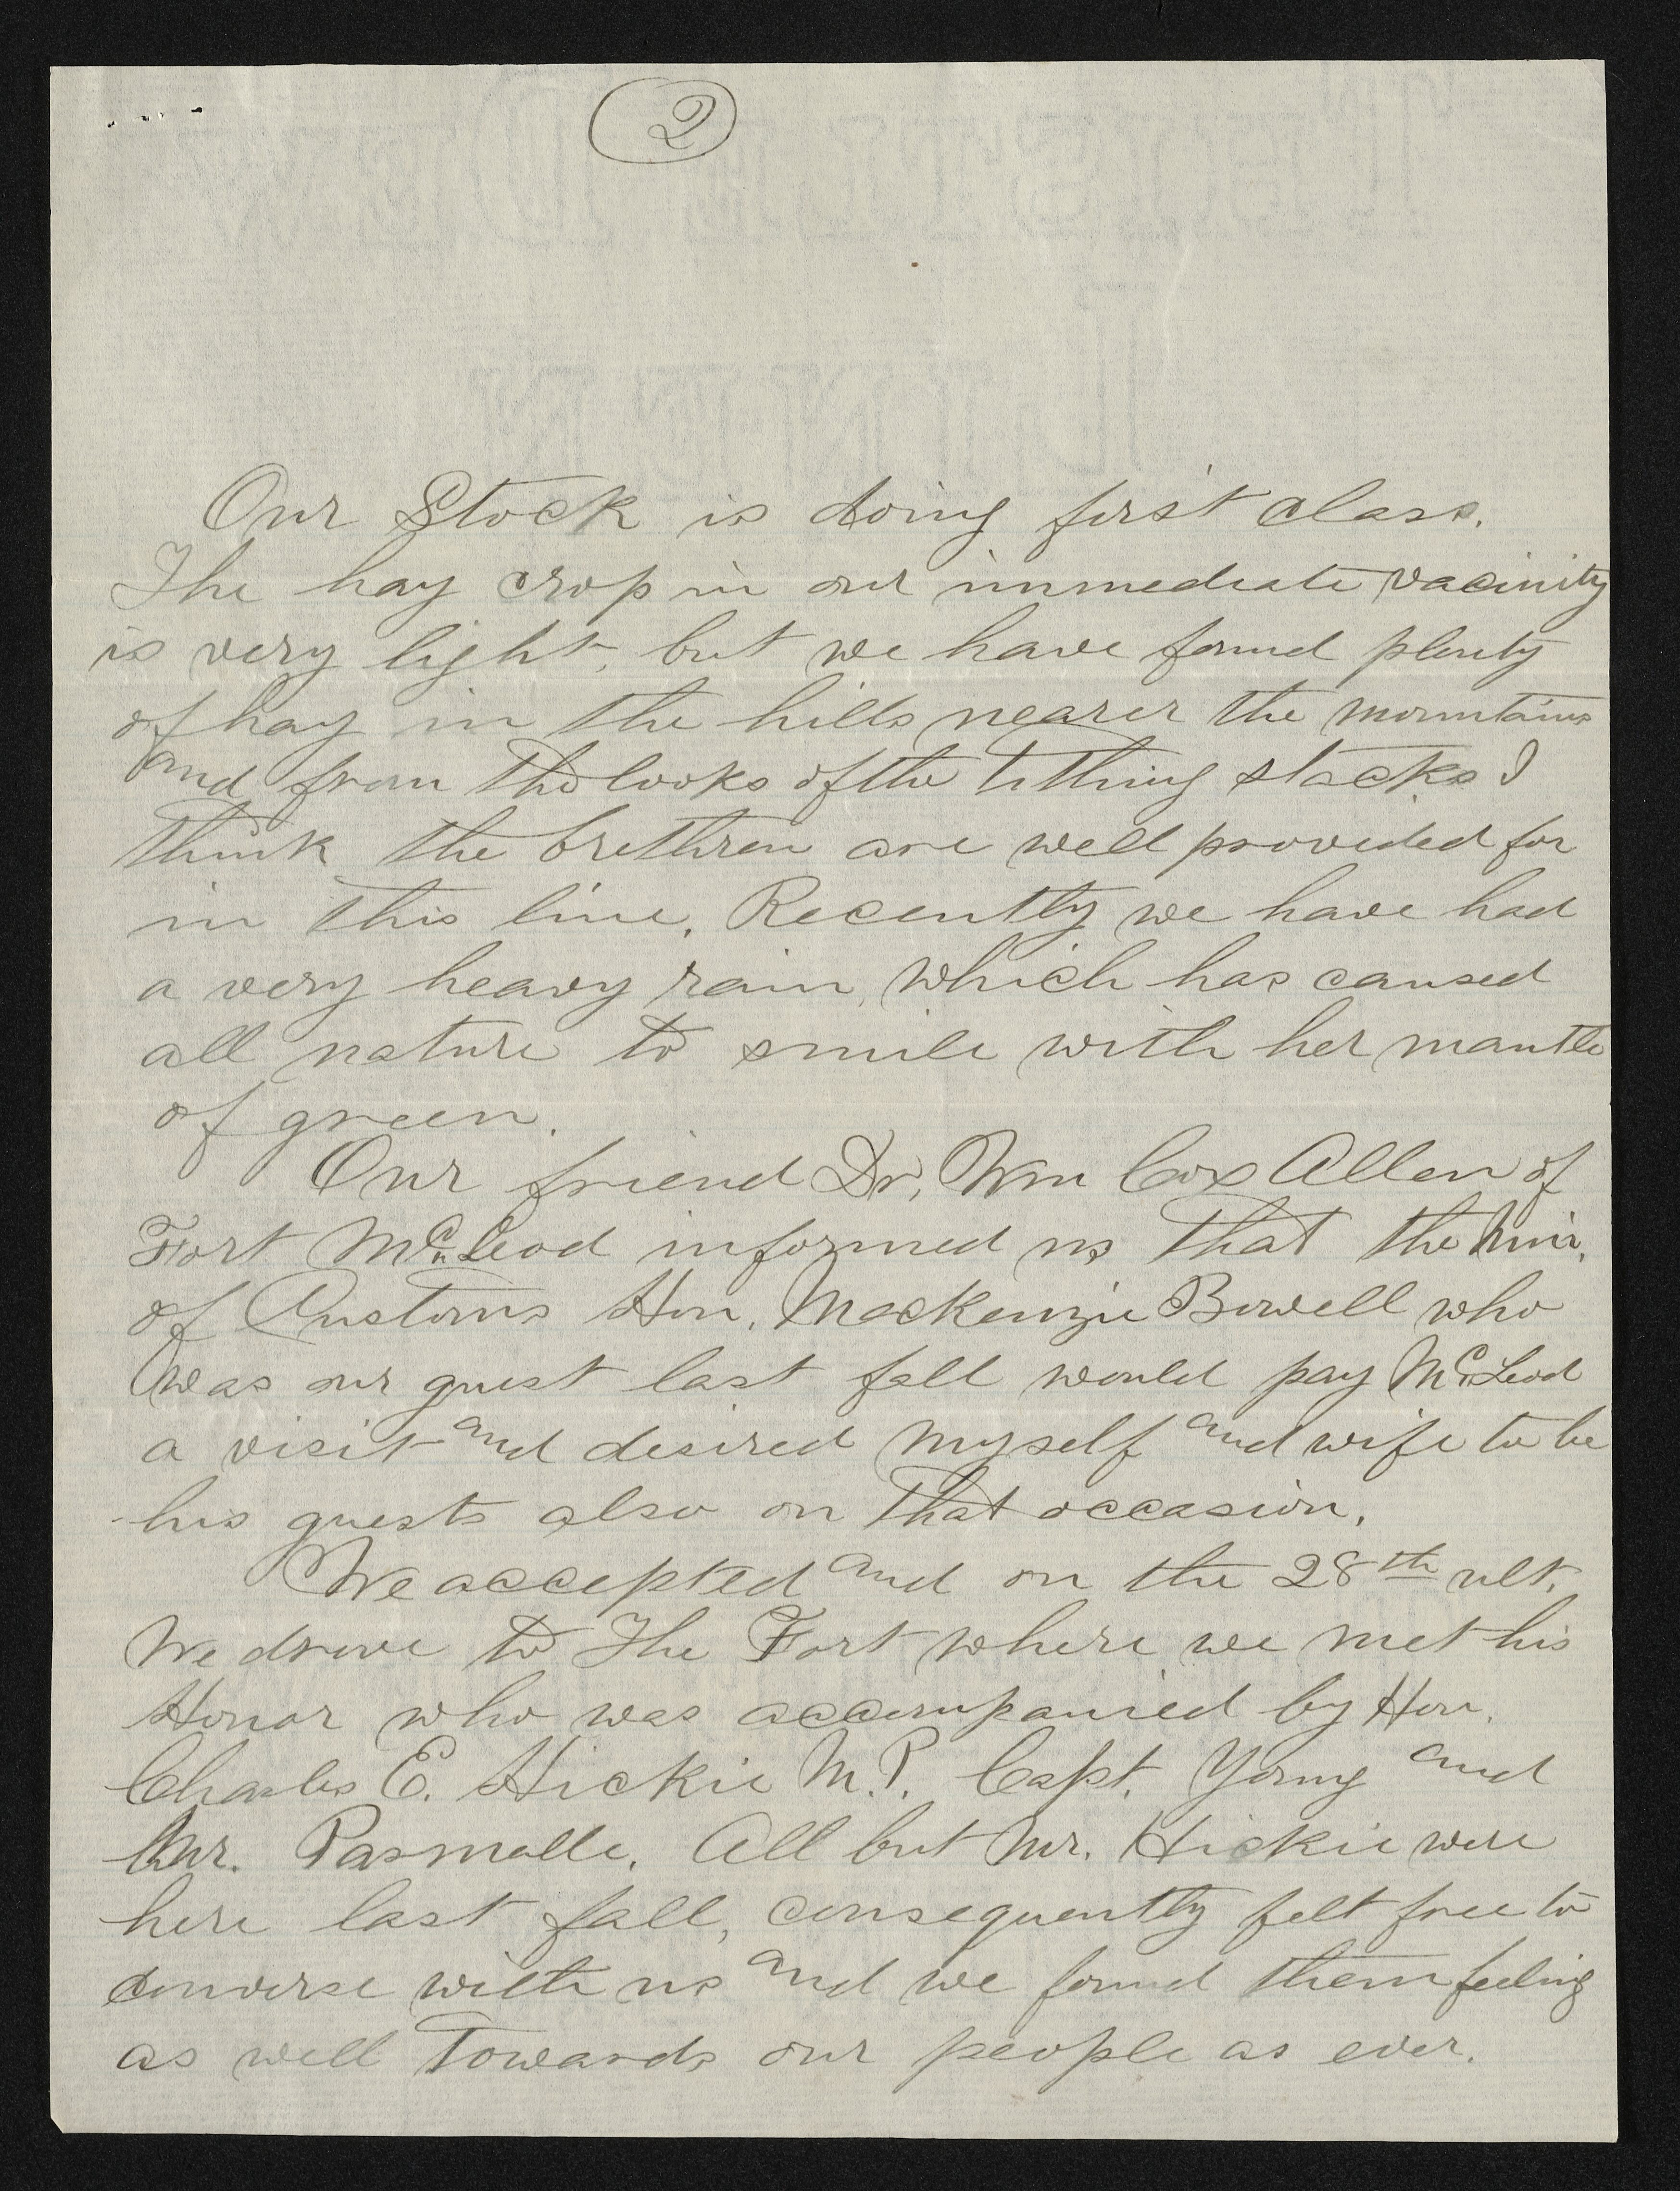 2
Our Stock is doing first class.
The hay crop in our immediate vacinity
is very light, but we have found plenty
of hay in the hills nearer the mountains
and from the looks of the tithing stacks I
think the brethren are well provided for
in this line. Recently we have had
a very heavy rain, which has caused
all nature to smile with her mantle
of green.
Our friend Dr. Wm Cox Allen of
Fort McLeod informed us that the Min.
of Customs Hon. Mackenzie Bowell who
was our guest last fall would pay McLeod
a visit and desired myself and wife to be
his guests also on that occasion.
We accepted and on the 28th ult.
We drove to The Fort where we met his
Honor who was accompanied by Hon.
Charles E. Hickie M.P. Capt. Young and
Mr. Pasmalle. All but Mr. Hickie were
here last fall, consequently felt free to
converse with us and we found them feeling
as well Towards our people as ever.